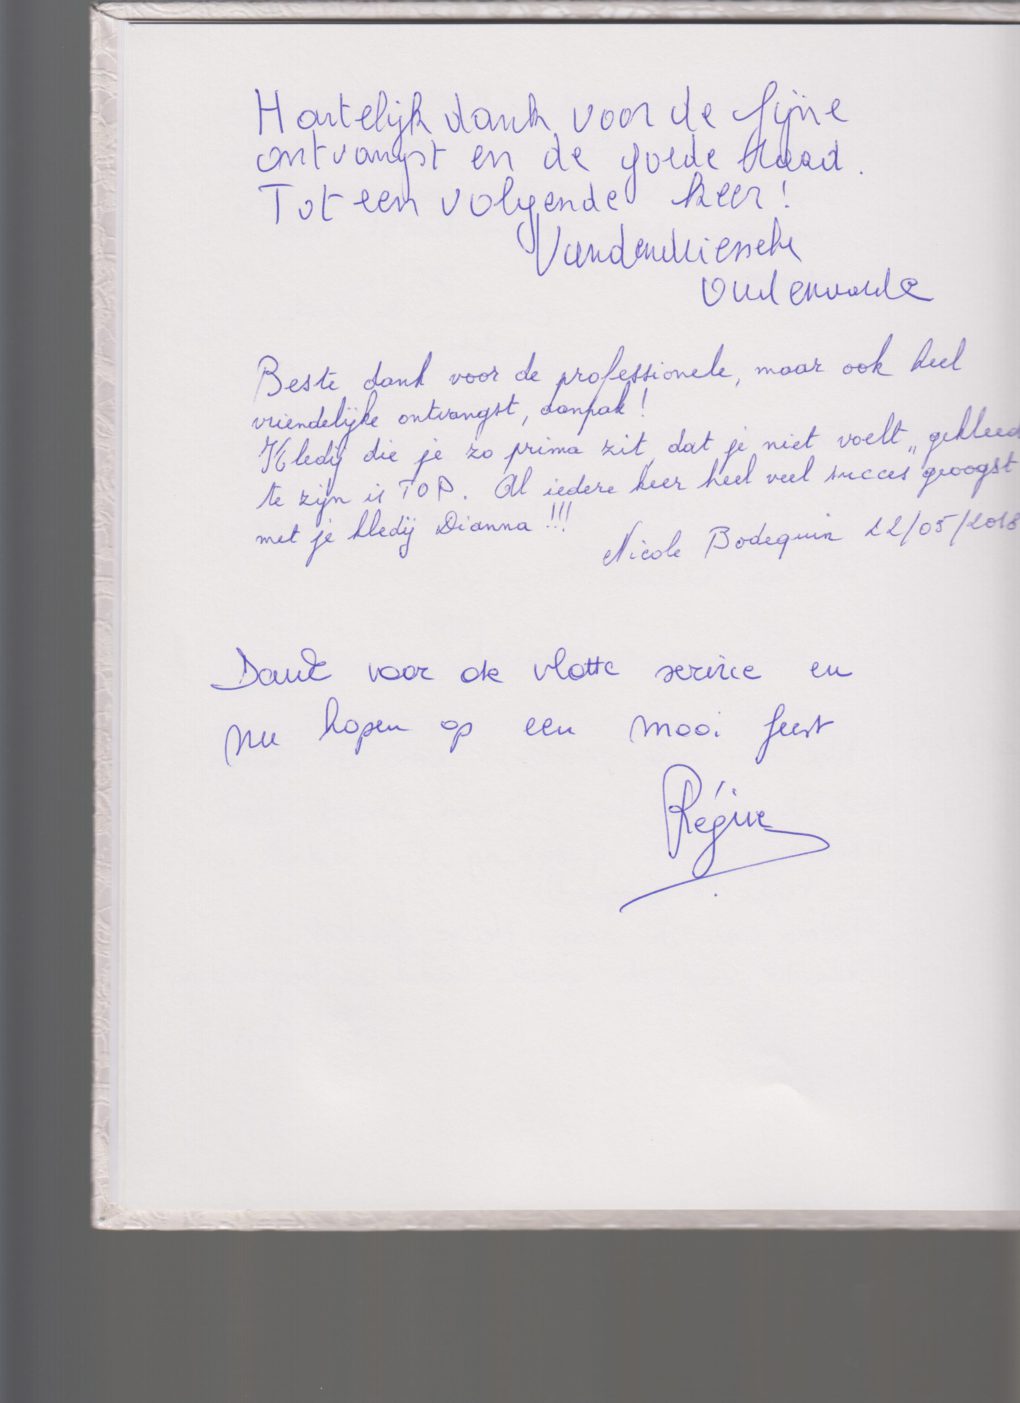 Hartelijk dank voor de fijne
ontvangst en de goede Raad.
Tot een volgende keer!
Vandendriessche
Oudenaarde
Beste dank voor de professionele, maar ook heel
vriendelijke ontvangst, aanpak!
Kledij die je zo prima zit, dat je niet voelt „gekleed
te zijn is TOP. Al iedere keer heel veel succes geoogst
met je kledij Dianna!!!
Nicole Bodequin 22/05/2018
Dank voor de vlotte service en
nu hopen op een mooi feest
Régine